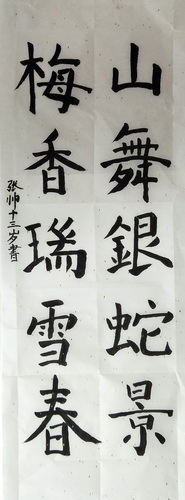 山舞銀蛇景
梅香瑞雪春
张帅十三岁書